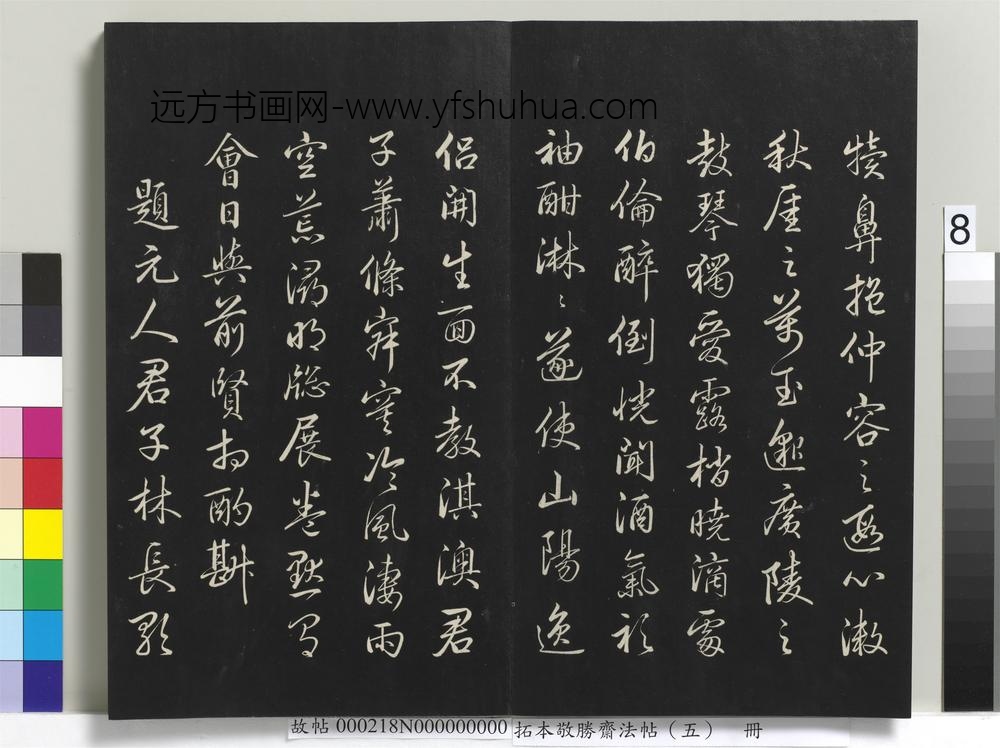 远方书画网-www.yfshuhua.com
犢鼻抱仲容之遐心漱
秋厓之萬玉邈廣陵之
鼓琴獨愛露梢曉滴處
伯倫醉倒恍聞酒氣衫
袖酣淋〻遂使山陽逸
侶開生面不教淇澳君
子蕭條寂寞冷風淒雨
空荒潯明牕展卷默
會日與前賢相酌斟
題元人君子林長歌
8
故帖 000218N000000000 拓本敬勝齋法帖（五） 冊